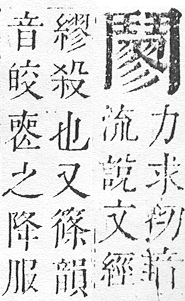 力求切音
流說文經
繆殺也又篠韻
音皎喪之降服